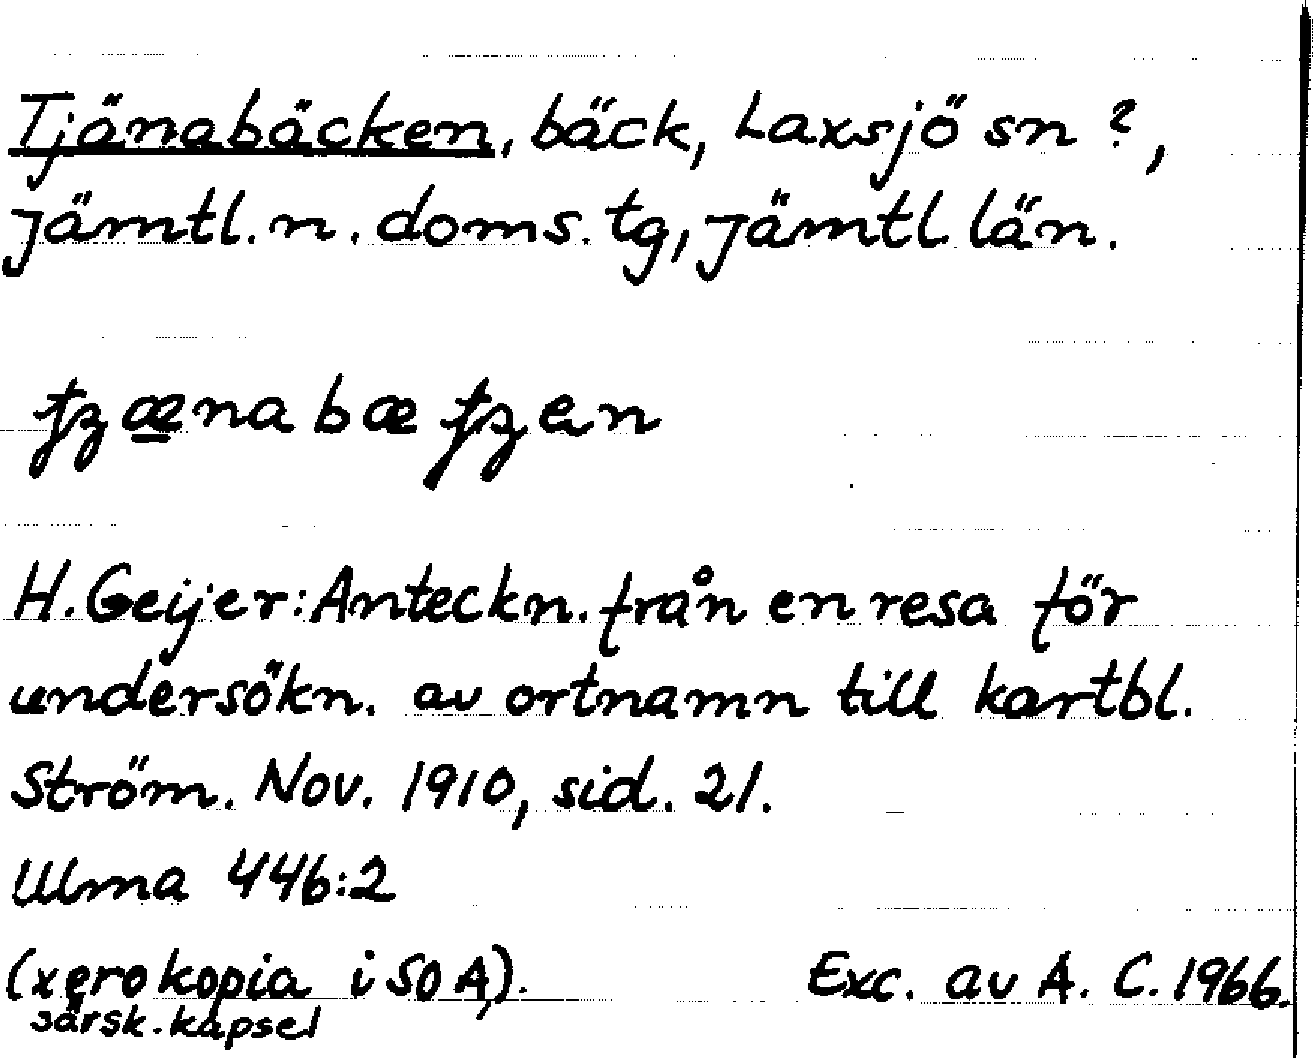 Tjänabäcken, bäck, Laxsjö sn ?,
Jämtl. n. doms. tg, Jämtl. län.
H. Geijer: Anteckn. från en resa för
undersökn. av ortnamn till kartbl.
Ström. Nov. 1910, sid. 21.
Ulma 446:2
(xerokopia i SOA, särsk. kapsel). Exc. av A. C. 1966.